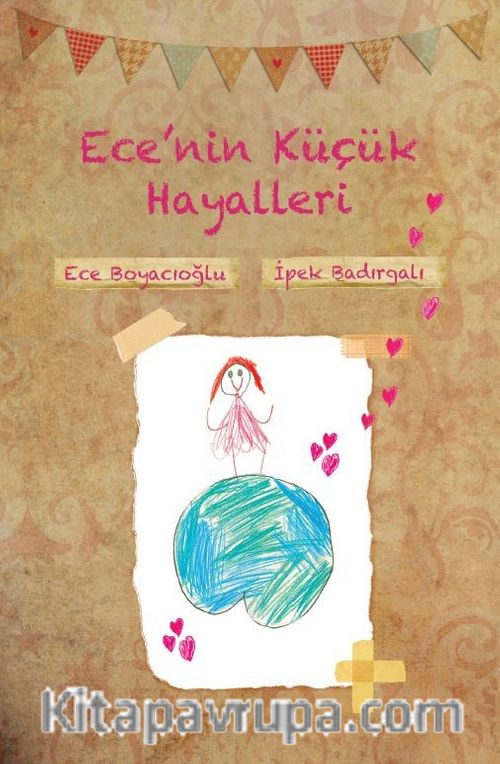 Ece'nin Küçük
Hayalleri
Ece Boyacıoğlu
İpek Badırgalı
Kitapavrupa.com